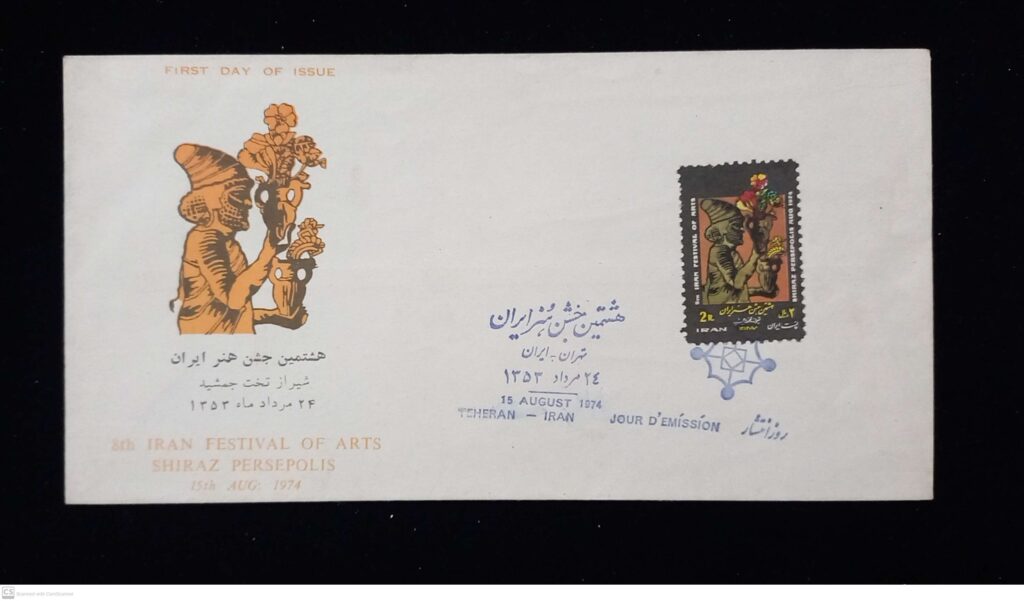 FIRST DAY OF ISSUE
هشتمین جشن هنر ایران
شیراز تخت جمشید
۲۴ مرداد ماه ۱۳۵۳
8th IRAN FESTIVAL OF ARTS
SHIRAZ PERSEPOLIS
15th AUG: 1974
هشتمین جشن هنر ایران
تهران - ایران
۲٤ مرداد ۱۳۵۳
15 AUGUST 1974
TEHERAN - IRAN
JOUR D'EMISSION
روز انتشار
8TH IRAN FESTIVAL OF ARTS
SHIRAZ PERSEPOLIS AUG 1974
هشتمین جشن هنر ایران
2R
۲ ریال
IRAN
پست ایران
CS Scanned with CamScanner